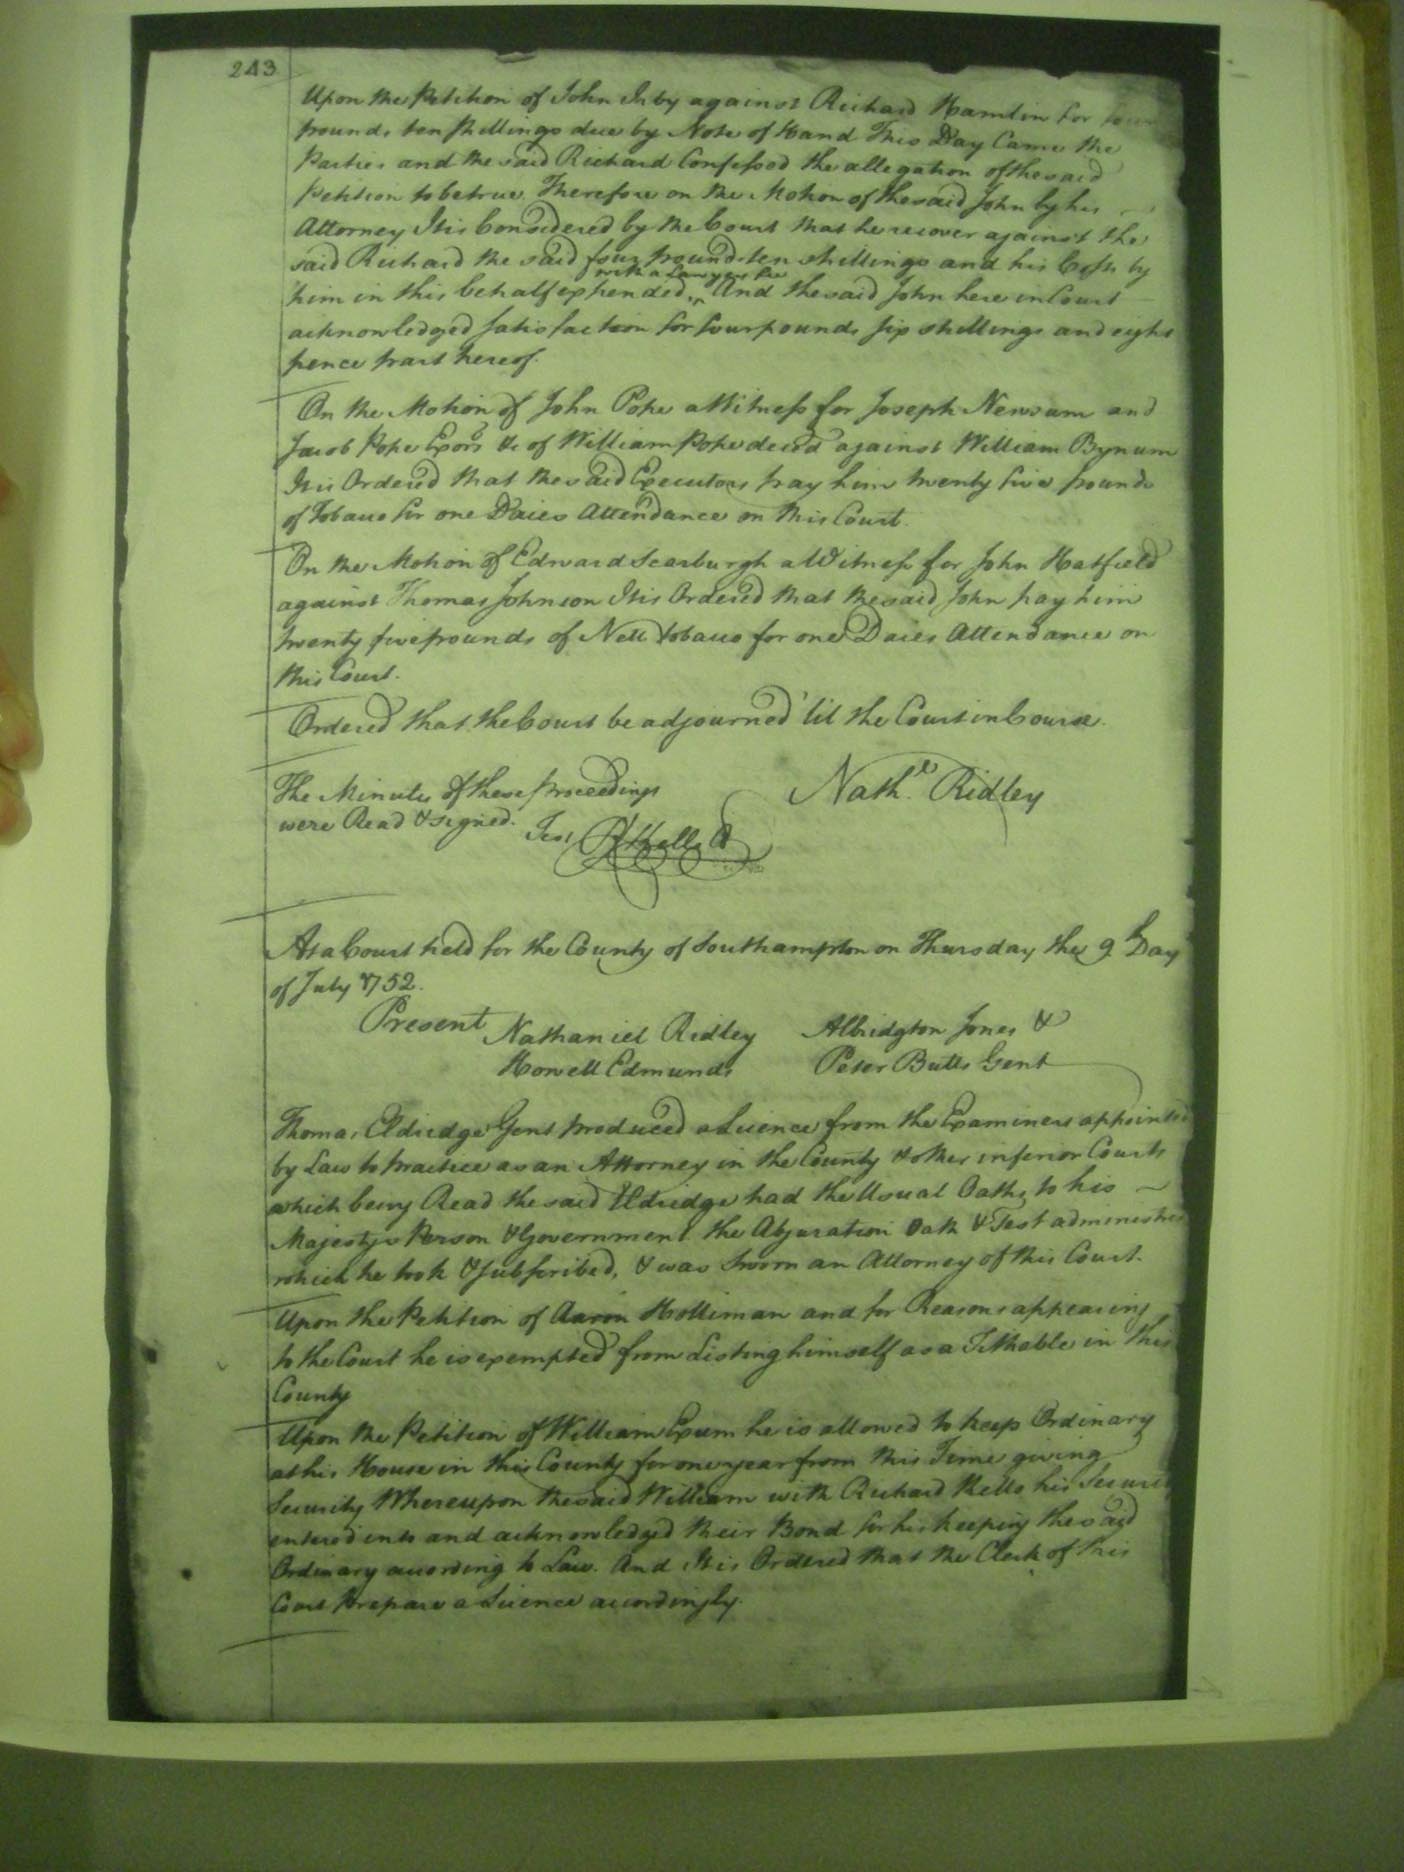 243
Upon the Petition of John Irby against Richard Hamlin for four
pounds ten shillings due by Note of Hand This Day Came the
Parties and the said Richard Confessed the allegation of the said
Petition to be true Therefore on the Motion of the said John by his
Attorney It is Considered by the Court that he recover against the
said Richard the said four pounds ten shillings and his Costs by
with a Lawyers fee
him in this behalf expended, And the said John here in Court
acknowledged satisfaction for four pounds six shillings and eight
pence part hereof.
On the Motion of John Pope a Witness for Joseph Newsum and
Jacob Pope Exors &c of William Pope deced against William Bynum
It is Ordered that the said Executors pay him twenty five pounds
of Tobacco for one Daies Attendance on this Court.
On the Motion of Edward Scarburgh a Witness for John Hatfield
against Thomas Johnson It is Ordered that the said John pay him
twenty five pounds of Nett tobacco for one Daies Attendance on
this Court.
Ordered that the Court be adjourned 'til the Court in Course.
The Minutes of these proceedings
were Read & signed.
Nathl. Ridley
Test R Kello
At a Court held for the County of Southampton on Thursday the 9th Day
of July 1752.
Present Nathaniel Ridley Albridgton Jones &
Howell Edmunds Peter Butts Gent
Thomas Eldridge Gent produced a Licence from the Examiners appointed
by Law to practice as an Attorney in the County & other inferior Courts
which being Read the said Eldridge had the Usual Oaths to his
Majestys Person & Government the Abjuration Oath & Test administred
which he took & subscribed, & was sworn an Attorney of this Court.
Upon the Petition of Aaron Holliman and for Reasons appearing
to the Court he is exempted from Listing himself as a Tithable in this
County
Upon the Petition of William Exum he is allowed to keep Ordinary
at his House in this County for one year from this Time giving
Security Whereupon the said William with Richard Kello his Security
entered into and acknowledged their Bond for his keeping the said
Ordinary according to Law. And It is Ordered that the Clerk of this
Court Prepare a Licence accordingly.